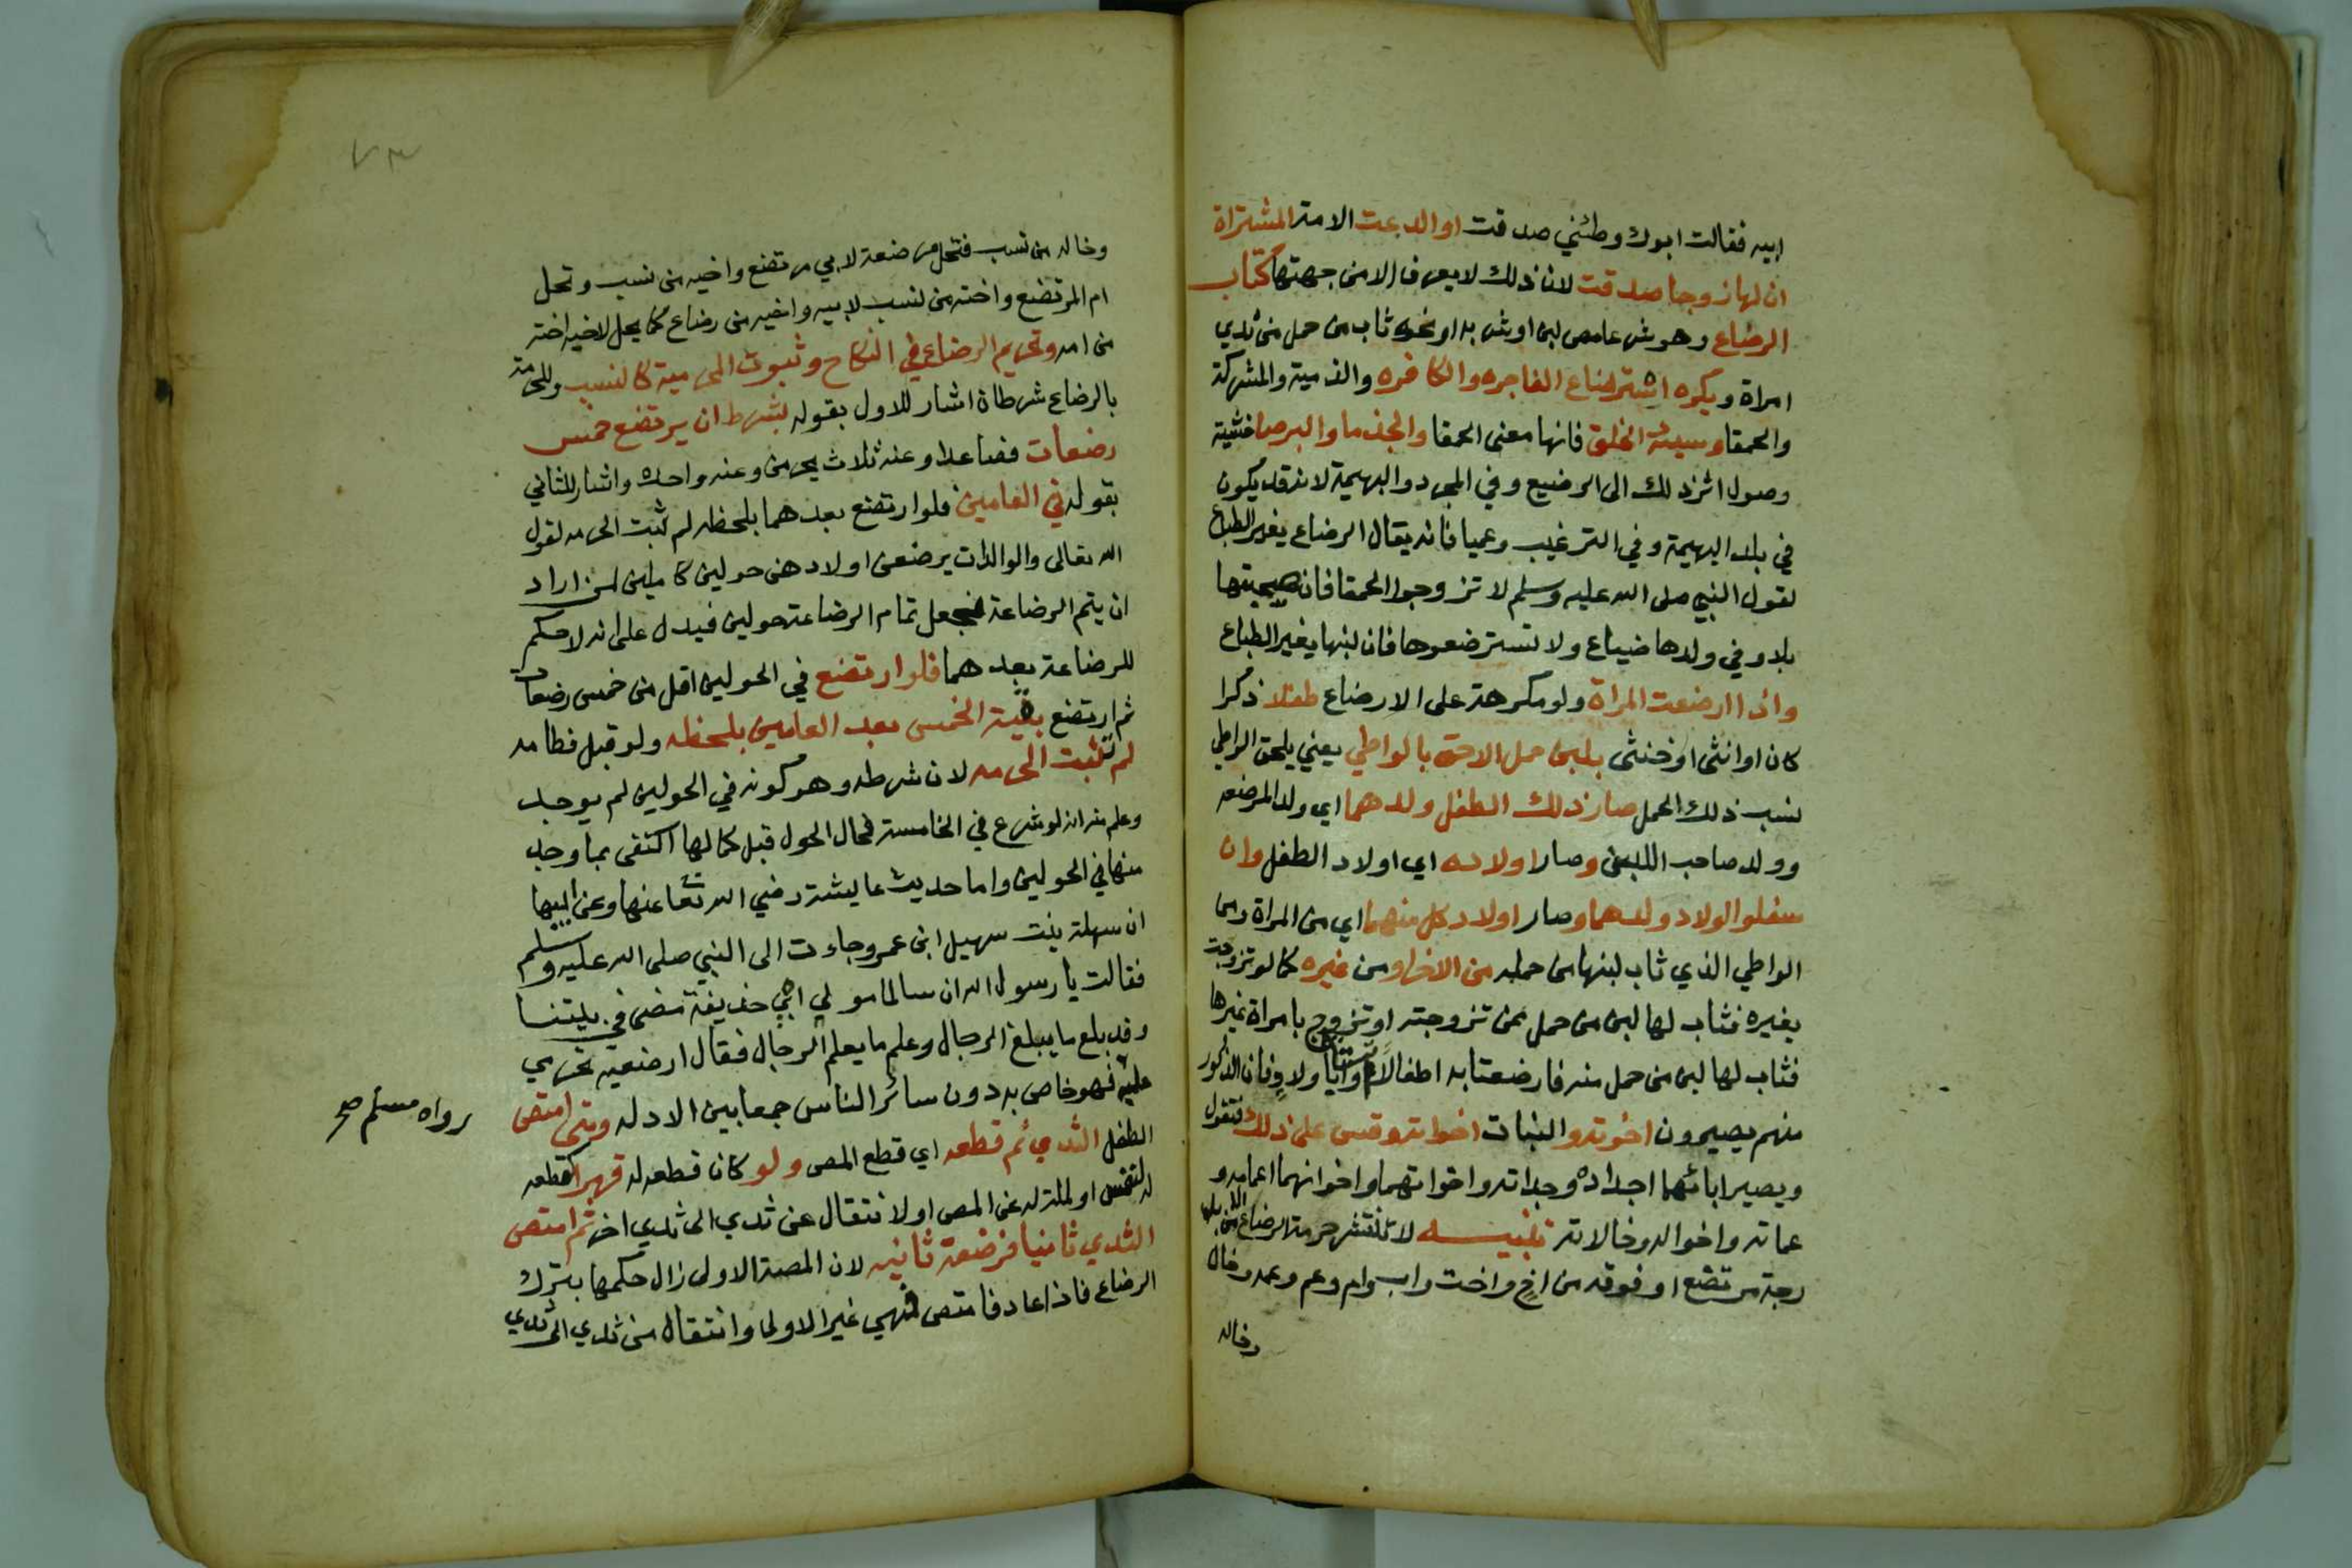 ابيه فقالت ابوك وطئني صدقت او ادعت الامة المشتراة
ان لها زوجا صدقت لان ذلك لا يعرف الا من جهتها كتاب
الرضاع وهو شرعا مص لبن او شربه او نحوه ثاب من حمل من ثدي
امراة ويكره استرضاع الفاجره والكافره والذمية والمشركة
والحمقا وسيئة الخلق فانها معنى الحمقا والجذما والبرصا خشية
وصول اثر ذلك الى الرضيع وفي المجرد والبهيمة لانه قد يكون
في بلد البهيمة وفي الترغيب وعميا فانه يقال الرضاع يغير الطباع
لقول النبي صلى الله عليه وسلم لا تزوجوا الحمقا فان صحبتها
بلاء وفي ولدها ضياع ولا تسترضعوها فان لبنها يغير الطباع
واذا ارضعت المراة ولو مكرهة على الارضاع طفلا ذكرا
كان او انثى او خنثى بلبن حمل لاحق بالواطي يعني يلحق الواطي
نسب ذلك الحمل صار ذلك الطفل ولدهما اي ولد المرضعه
وولد صاحب اللبن وصار اولاده اي اولاد الطفل وان
سفلوا اولاد ولدهما وصار اولاد كل منهما اي من المراة ومن
الواطي الذي ثاب لبنها من حمله من الاخر او من غيره كما لو تزوجت
بغيره فثاب لها لبن من حمل ممن تزوجته او تزوج بامراة غيرها
فثاب لها لبن من حمل منه فارضعتا به اطفالا ولاد فان الذكور
منهم يصيرون اخوته والبنات اخواته وقس على ذلك فتقول
ويصير ابائهما اجداده وجداته واخواتهما واخوانهما اعمامه و
عماته واخواله وخالاته تنبيــه لا تنتشر حرمة الرضاع الى من بدرجة
رجة مرتضع او فوقه من اخ واخت واب وام وعم وعمه وخال
وخاله
٧٣
وخاله من نسب فتحل مرضعة لابي مرتضع واخيه من نسب وتحل
ام المرتضع واخته من نسب لابيه واخيه من رضاع كما يحل لاخيه اخته
من امه وتحريم الرضاع في النكاح وثبوت المحرمية كالنسب وللحرمة
بالرضاع شرطان اشار للاول بقوله بشرط ان يرتضع خمس
رضعات فصاعدا وعنه ثلاث يحرمن وعنه واحدة واشار للثاني
بقوله في العامين فلو ارتضع بعدهما بلحظه لم تثبت الحرمه لقول
الله تعالى والوالدات يرضعن اولادهن حولين كاملين لمن اراد
ان يتم الرضاعة فجعل تمام الرضاعة حولين فيدل على انه لا حكم
للرضاعة بعدهما فلو ارتضع في الحولين اقل من خمس رضعات
ثم ارتضع بقية الخمس بعد العامين بلحظه ولو قبل فطامه
لم تثبت الحرمه لان شرطه وهو كونه في الحولين لم يوجد
وعلم منه انه لو شرع في الخامسة فحال الحول قبل كمالها اكتفى بما وجد
منها في الحولين واما حديث عايشة رضي الله تعا عنها وعن ابيها
ان سهلة بنت سهيل ابن عمرو جاءت الى النبي صلى الله عليه وسلم
فقالت يا رسول الله ان سالما مولى ابي حذيفة معنا في بيتنا
وقد بلغ ما يبلغ الرجال وعلم ما يعلم الرجال فقال ارضعيه تحرمي
عليه فهو خاص به دون سائر الناس جمعا بين الادله ومتى امتص
رواه مسلم صح
الطفل الثدي ثم قطعه اي قطع المص ولو كان قطعه له قهرا او قطعه
لتنفس او لملة له عن المص او لانتقال عن ثدي الى ثدي اخر ثم امتص
الثدي ثانيا فرضعة ثانيه لان المصة الاولى زال حكمها بترك
الرضاع فاذا عاد فامتص فهي غير الاولى وانتقال من ثدي الى ثدي